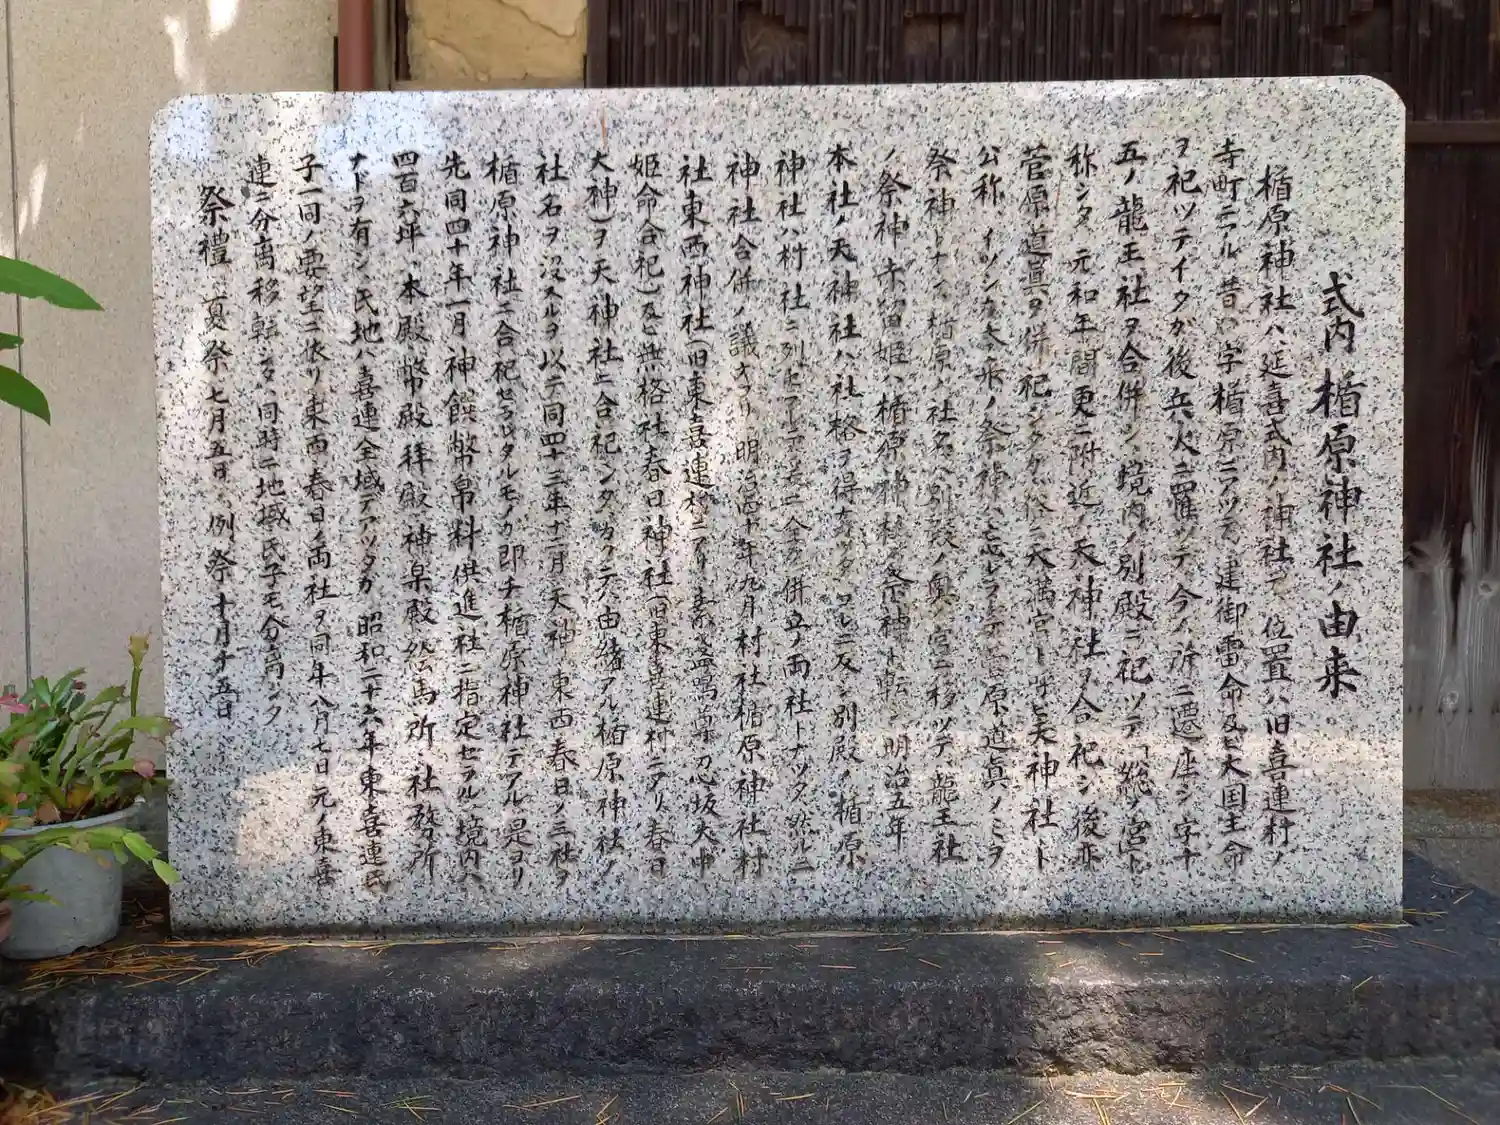 式内楯原神社ノ由来
楯原神社ハ延喜式内ノ神社デ位置ハ旧喜連村ノ
寺町ニアル昔ハ字楯原ニアツテ建御雷命及ビ大国主命
ヲ祀ツテイタガ後兵火ニ罹ツテ今ノ所ニ遷座シ字十
五ノ龍王社ヲ合併シ境内ノ別殿ニ祀ツテ「総ノ宮」ト
称シタ元和年間更ニ附近ノ天神社ヲ合祀シ後亦
菅原道眞ヲ併祀シタガ俗ニ天満宮ト呼ビ天神社ト
公称、イツシカ本来ノ祭神、忘レラレテ菅原道眞ノミヲ
祭神トナス、楯原ノ社名ハ別殿ノ奥ノ宮ニ移ツテ、龍王社
ノ祭神赤留姫ハ楯原神社ノ祭神ト転シ明治五年
本社ノ天神社ハ社格ヲ得ナカツタコレニ反シ別殿ノ楯原
神社ハ村社ニ列セラレテココニ全ク併立ノ両社トナツタ然ルニ
神社合併ノ議オコリ明治四十年九月村社楯原神社村
社東西神社(旧東喜連村ニアリ素盞嗚尊忍坂大中
姫命合祀)及ビ無格社春日神社(旧東喜連村ニアリ春日
大神)ヲ天神社ニ合祀シタ、カクテ由緒アル楯原神社ノ
社名ヲ没スルヲ以テ同四十三年十二月天神、東西春日ノ三社ヲ
楯原神社ニ合祀セラレタルモノガ即チ楯原神社デアル是ヨリ
先同四十年一月神饌幣帛料供進社ニ指定セラル、境内ハ
四百六坪、本殿幣殿拝殿神楽殿絵馬所、社務所
ナドヲ有シ氏地ハ喜連全域デアツタガ昭和二十六年東喜連氏
子一同ノ要望ニ依リ東西春日ノ両社ヲ同年八月七日元ノ東喜
連ニ分離移転シタ、同時ニ地域氏子モ分離シタ
祭禮 夏祭七月五日、例祭十月十五日